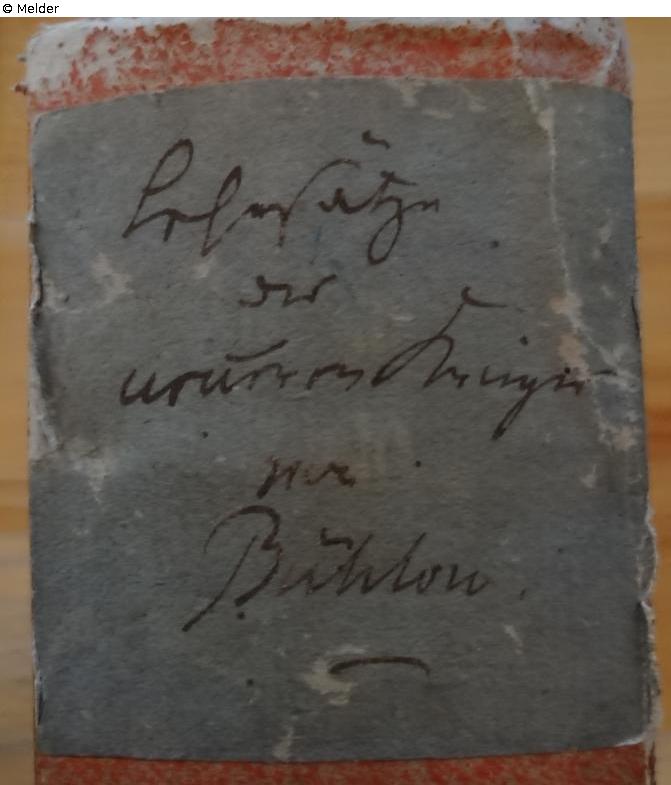 © Melder
Lehrsätze
der
neueren Krieges
von
Bühlow.